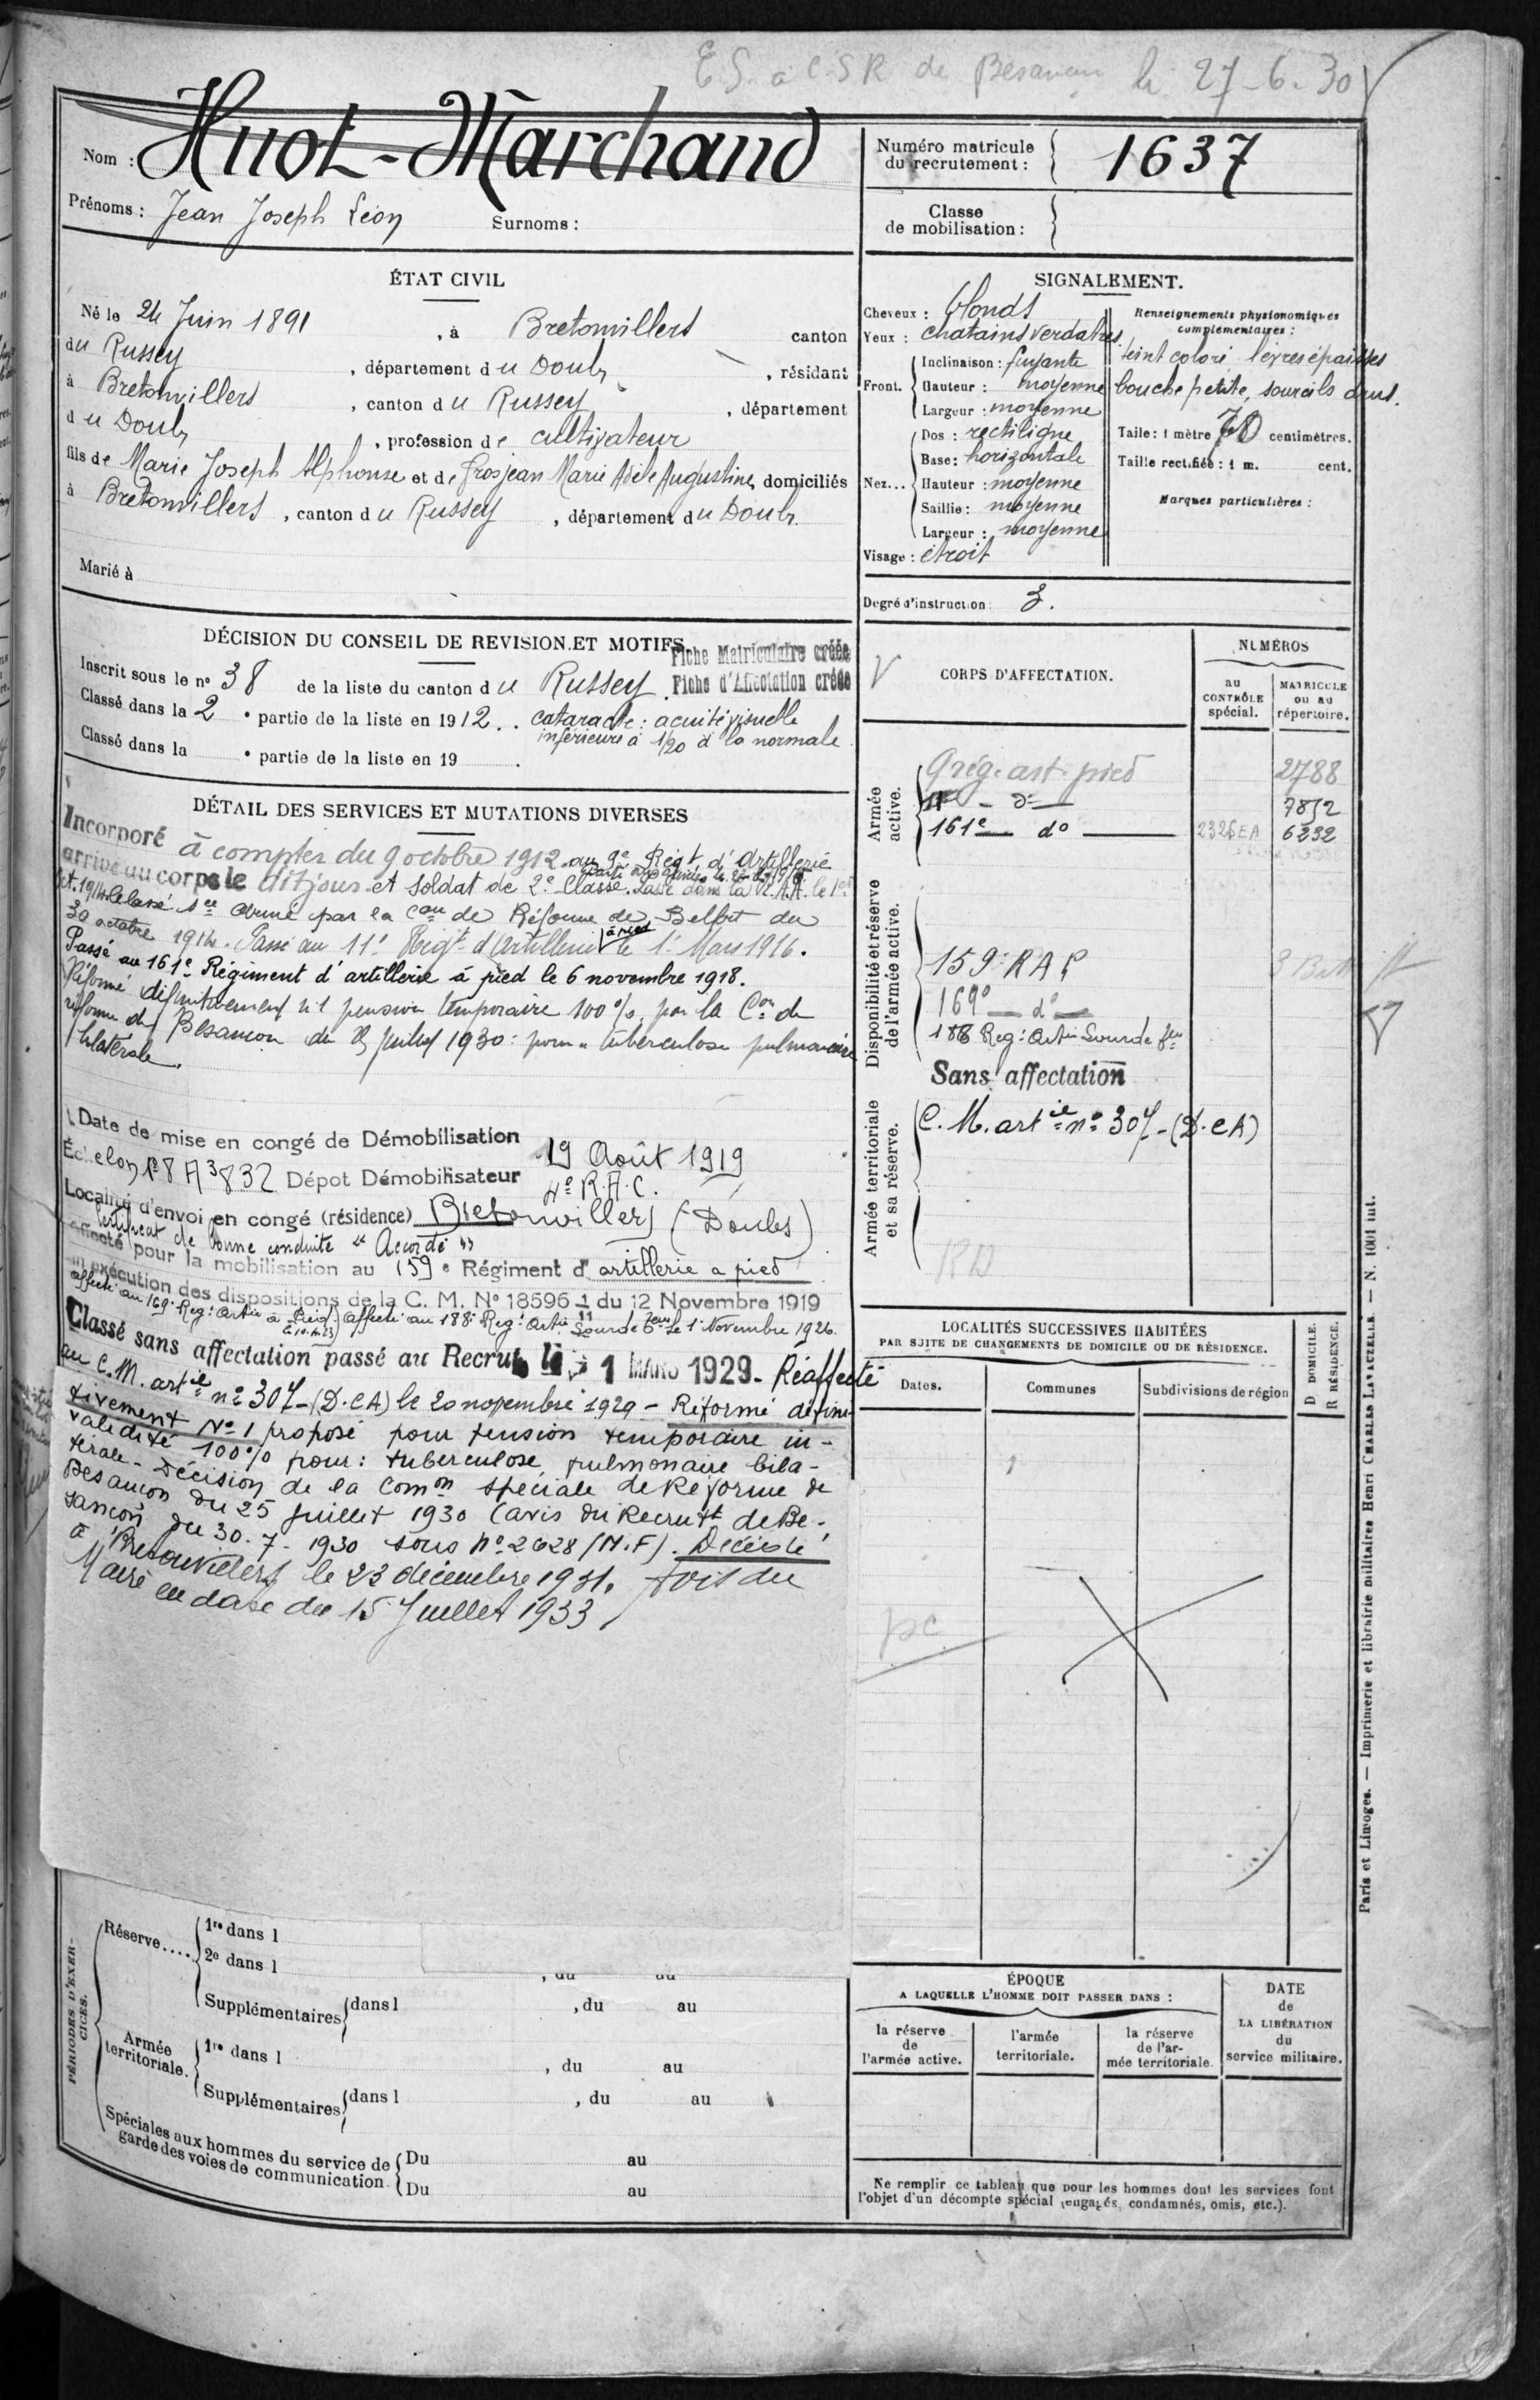 E.S. à C.S.R de Besançon le 27-6-30
Nom : Huot-Marchand
Prénoms : Jean Joseph Léon Surnoms :
Numéro matricule du recrutement : 1637
Classe de mobilisation :
ÉTAT CIVIL
Né le 24 Juin 1891, à Bretonvillers canton
du Russey, département du Doubs, résidant
à Bretonvillers, canton du Russey, département
du Doubs, profession de cultivateur
fils de Marie Joseph Alphonse et de Grosjean Marie Adèle Augustine, domiciliés
à Bretonvillers, canton du Russey, département du Doubs.
Marié à
SIGNALEMENT.
Cheveux : blonds
Yeux : chatains verdatres.
Front. Inclinaison : fuyante
Hauteur : moyenne
Largeur : moyenne
Nez... Dos : rectiligne
Base : horizontale
Hauteur : moyenne
Saillie : moyenne
Largeur : moyenne
Visage : étroit
Renseignements physionomiques complémentaires :
teint coloré, lèvres épaisses
bouche petite, sourcils drus.
Taille : 1 mètre 70 centimètres.
Taille rectifiée : 1 m. cent.
Marques particulières :
Degré d'instruction : 3.
DÉCISION DU CONSEIL DE REVISION ET MOTIFS
Fiche Matriculaire créée
Fiche d'Affectation créée
Inscrit sous le n° 38 de la liste du canton du Russey.
Classé dans la 2e partie de la liste en 1912. cataracte : acuité visuelle
inférieure à 1/20 à la normale
Classé dans la e partie de la liste en 19 .
DÉTAIL DES SERVICES ET MUTATIONS DIVERSES
Incorporé à compter du 9 octobre 1912 au 9e Régt d'Artillerie
arrivé au corps le dit jour et soldat de 2e Classe. Passé dans la R.A.A. le 1er
oct. 1914. Classé Sce armé par la Con de Réforme de Belfort du
30 octobre 1914. Passé au 11e Régt d'Artillerie à pied le 1er Mars 1916.
Passé au 161e Régiment d'artillerie à pied le 6 novembre 1918.
Réformé définitivement n°1 pension temporaire 100%, par la Con de
réforme de Besançon du 25 Juillet 1930 : pour « tuberculose pulmonaire
bilatérale.
Date de mise en congé de Démobilisation 19 Août 1919
Échelon N° 8 A 3832 Dépot Démobilisateur 4e R.A.C.
Localité d'envoi en congé (résidence) Bretonvillers (Doubs)
Certificat de bonne conduite "Accordé"
affecté pour la mobilisation au 159e Régiment d'artillerie à pied
en exécution des dispositions de la C. M. N° 18596 1/11 du 12 Novembre 1919
affecté au 169e Reg. Artie à Pied. Affecté au 188e Reg. Artie Lourde le 1 Novembre 1926.
Classé sans affectation passé au Recrut le 1 MARS 1929. Réaffecté
au C.M. artie n° 307-(D.C.A) le 20 novembre 1929 - Réformé défini-
tivement N° 1 proposé pour pension temporaire in-
validité 100% pour : tuberculose pulmonaire bila-
térale - Décision de la Comon spéciale de Réforme de
Besançon du 25 Juillet 1930 (avis du Recrutt de Be-
sançon du 30-7-1930 sous n° 2628 (M.F). Décédé
à Bretonvillers le 23 décembre 1931. Avis du
Maire en date du 15 Juillet 1933
CORPS D'AFFECTATION.
NUMÉROS
AU CONTRÔLE spécial.
MATRICULE OU AU répertoire.
Armée active.
9 rég. art. pied 2788
11e - d° 7852
161e d° 2326EA 6232
Disponibilité et réserve de l'armée active.
159e RAP
169e d°
188 Reg. Artie Lourde
Sans affectation
Armée territoriale et sa réserve.
C.M. artie n° 307-(D.C.A)
RD
LOCALITÉS SUCCESSIVES HABITÉES
PAR SUITE DE CHANGEMENTS DE DOMICILE OU DE RÉSIDENCE.
Dates.
Communes
Subdivisions de région
D DOMICILE.
R RÉSIDENCE.
pc
PÉRIODES D'EXERCICES.
Réserve.... 1re dans l
2e dans l , du au
Supplémentaires dans l , du au
Armée territoriale. 1re dans l , du au
Supplémentaires dans l , du au
Spéciales aux hommes du service de garde des voies de communication. Du au
Du au
ÉPOQUE
A LAQUELLE L'HOMME DOIT PASSER DANS :
la réserve de l'armée active.
l'armée territoriale.
la réserve de l'armée territoriale.
DATE de LA LIBÉRATION du service militaire.
Ne remplir ce tableau que pour les hommes dont les services font
l'objet d'un décompte spécial (engagés, condamnés, omis, etc.).
Paris et Limoges. — Imprimerie et librairie militaires Henri CHARLES-LAVAUZELLE. — N. 1001 int.